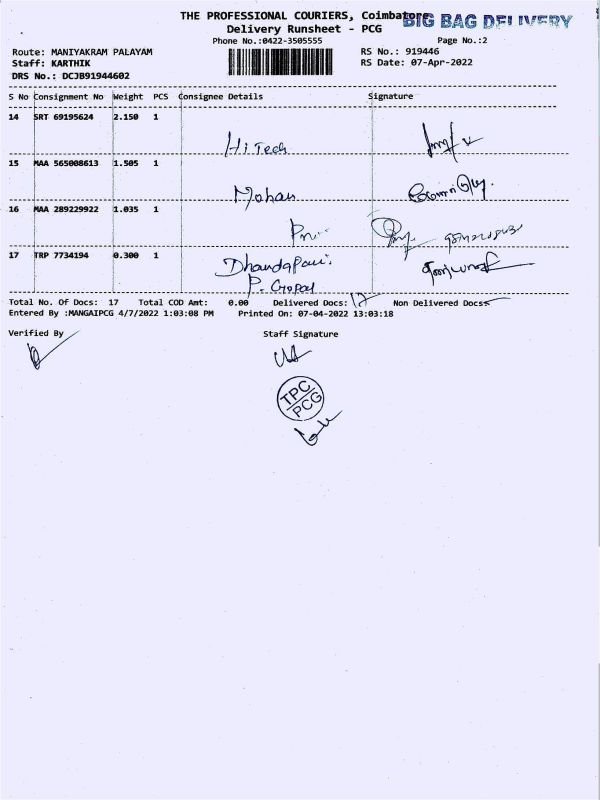 THE PROFESSIONAL COURIERS, Coimbatore
BIG BAG DELIVERY
Delivery Runsheet - PCG
Phone No.:0422-3505555
Page No.:2
Route: MANIYAKRAM PALAYAM
RS No.: 919446
Staff: KARTHIK
RS Date: 07-Apr-2022
DRS No.: DCJB91944602
S No Consignment No Weight PCS Consignee Details Signature
14 SRT 69195624 2.150 1
Hi Tech
15 MAA 565008613 1.505 1
Mohan
16 MAA 289229922 1.035 1
17 TRP 7734194 0.300 1
Dhandapani
P. Gopal
Total No. Of Docs: 17 Total COD Amt: 0.00 Delivered Docs: 17 Non Delivered Docs:
Entered By :MANGAIPCG 4/7/2022 1:03:08 PM Printed On: 07-04-2022 13:03:18
Verified By Staff Signature
TPC
PCG